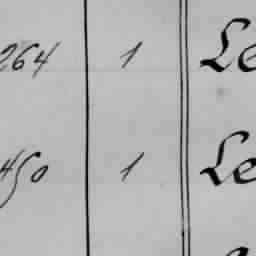 264 1 Le
450 1 Le